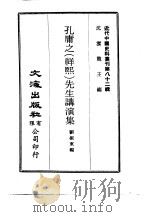 近代中國史料叢刊第八十二輯
沈雲龍主編
孔庸之(祥熙)先生講演集
劉振東編
文海出版社有限公司印行